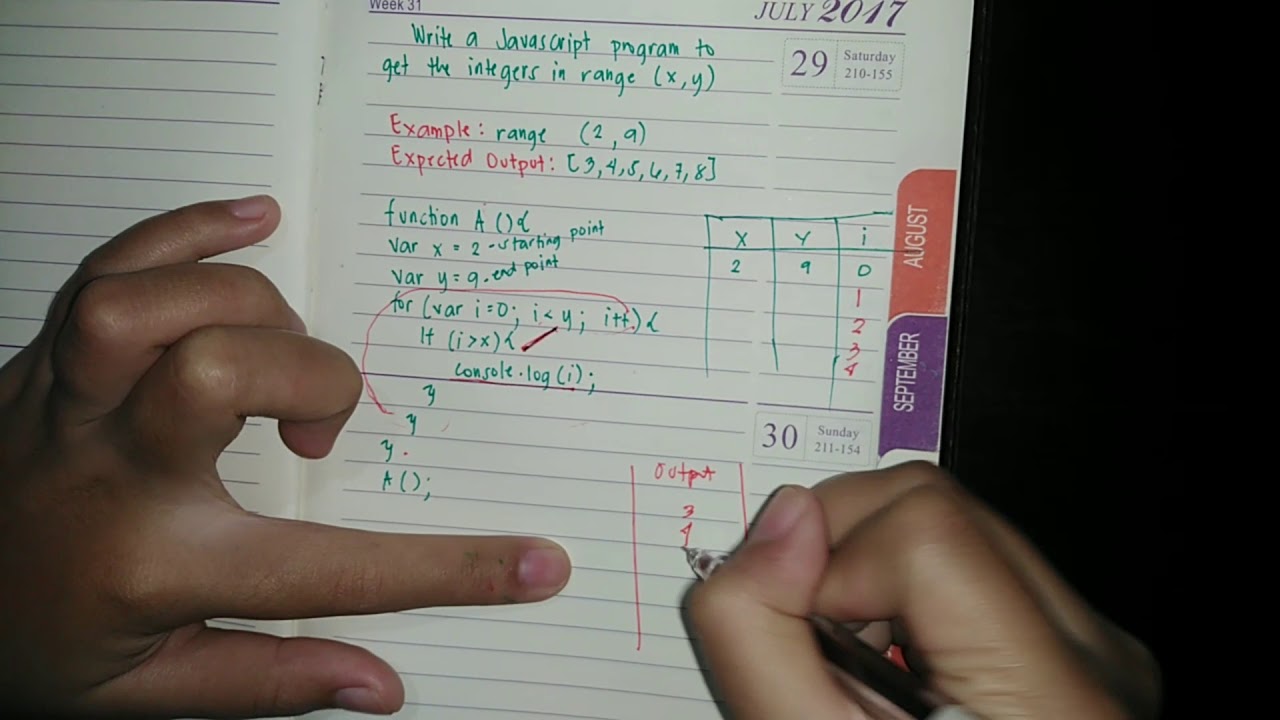 Week 31
JULY 2017
Write a Javascript program to
get the integers in range (x,y)
29
Saturday
210-155
Example: range (2,9)
Expected Output: [3,4,5,6,7,8]
function A(){
var x = 2 - starting point
var y = 9. end point
for (var i=0; i<y; i++){
If (i>x){
console.log(i);
}
}
}.
A();
X Y i
2 9 0
1
2
3
4
30
Sunday
211-154
Output
3
4
AUGUST
SEPTEMBER